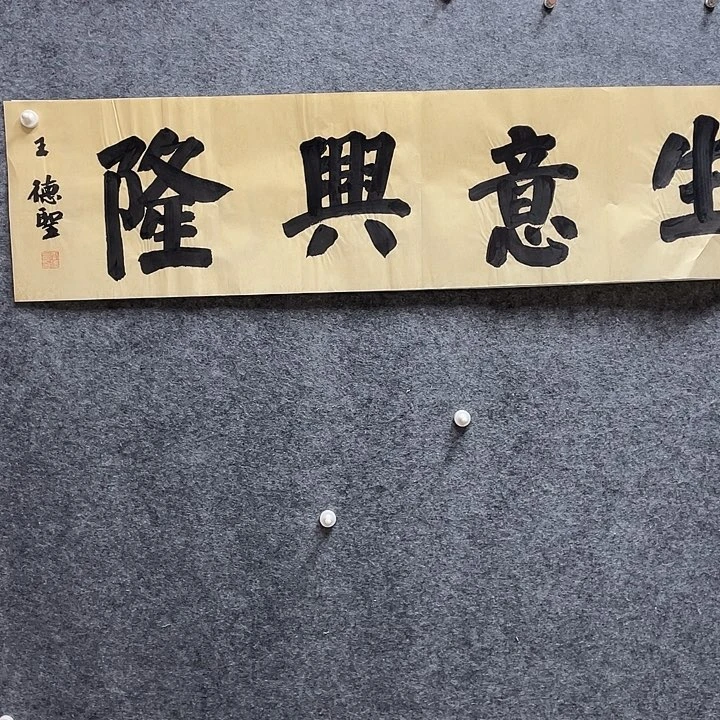 生意興隆
王德聖